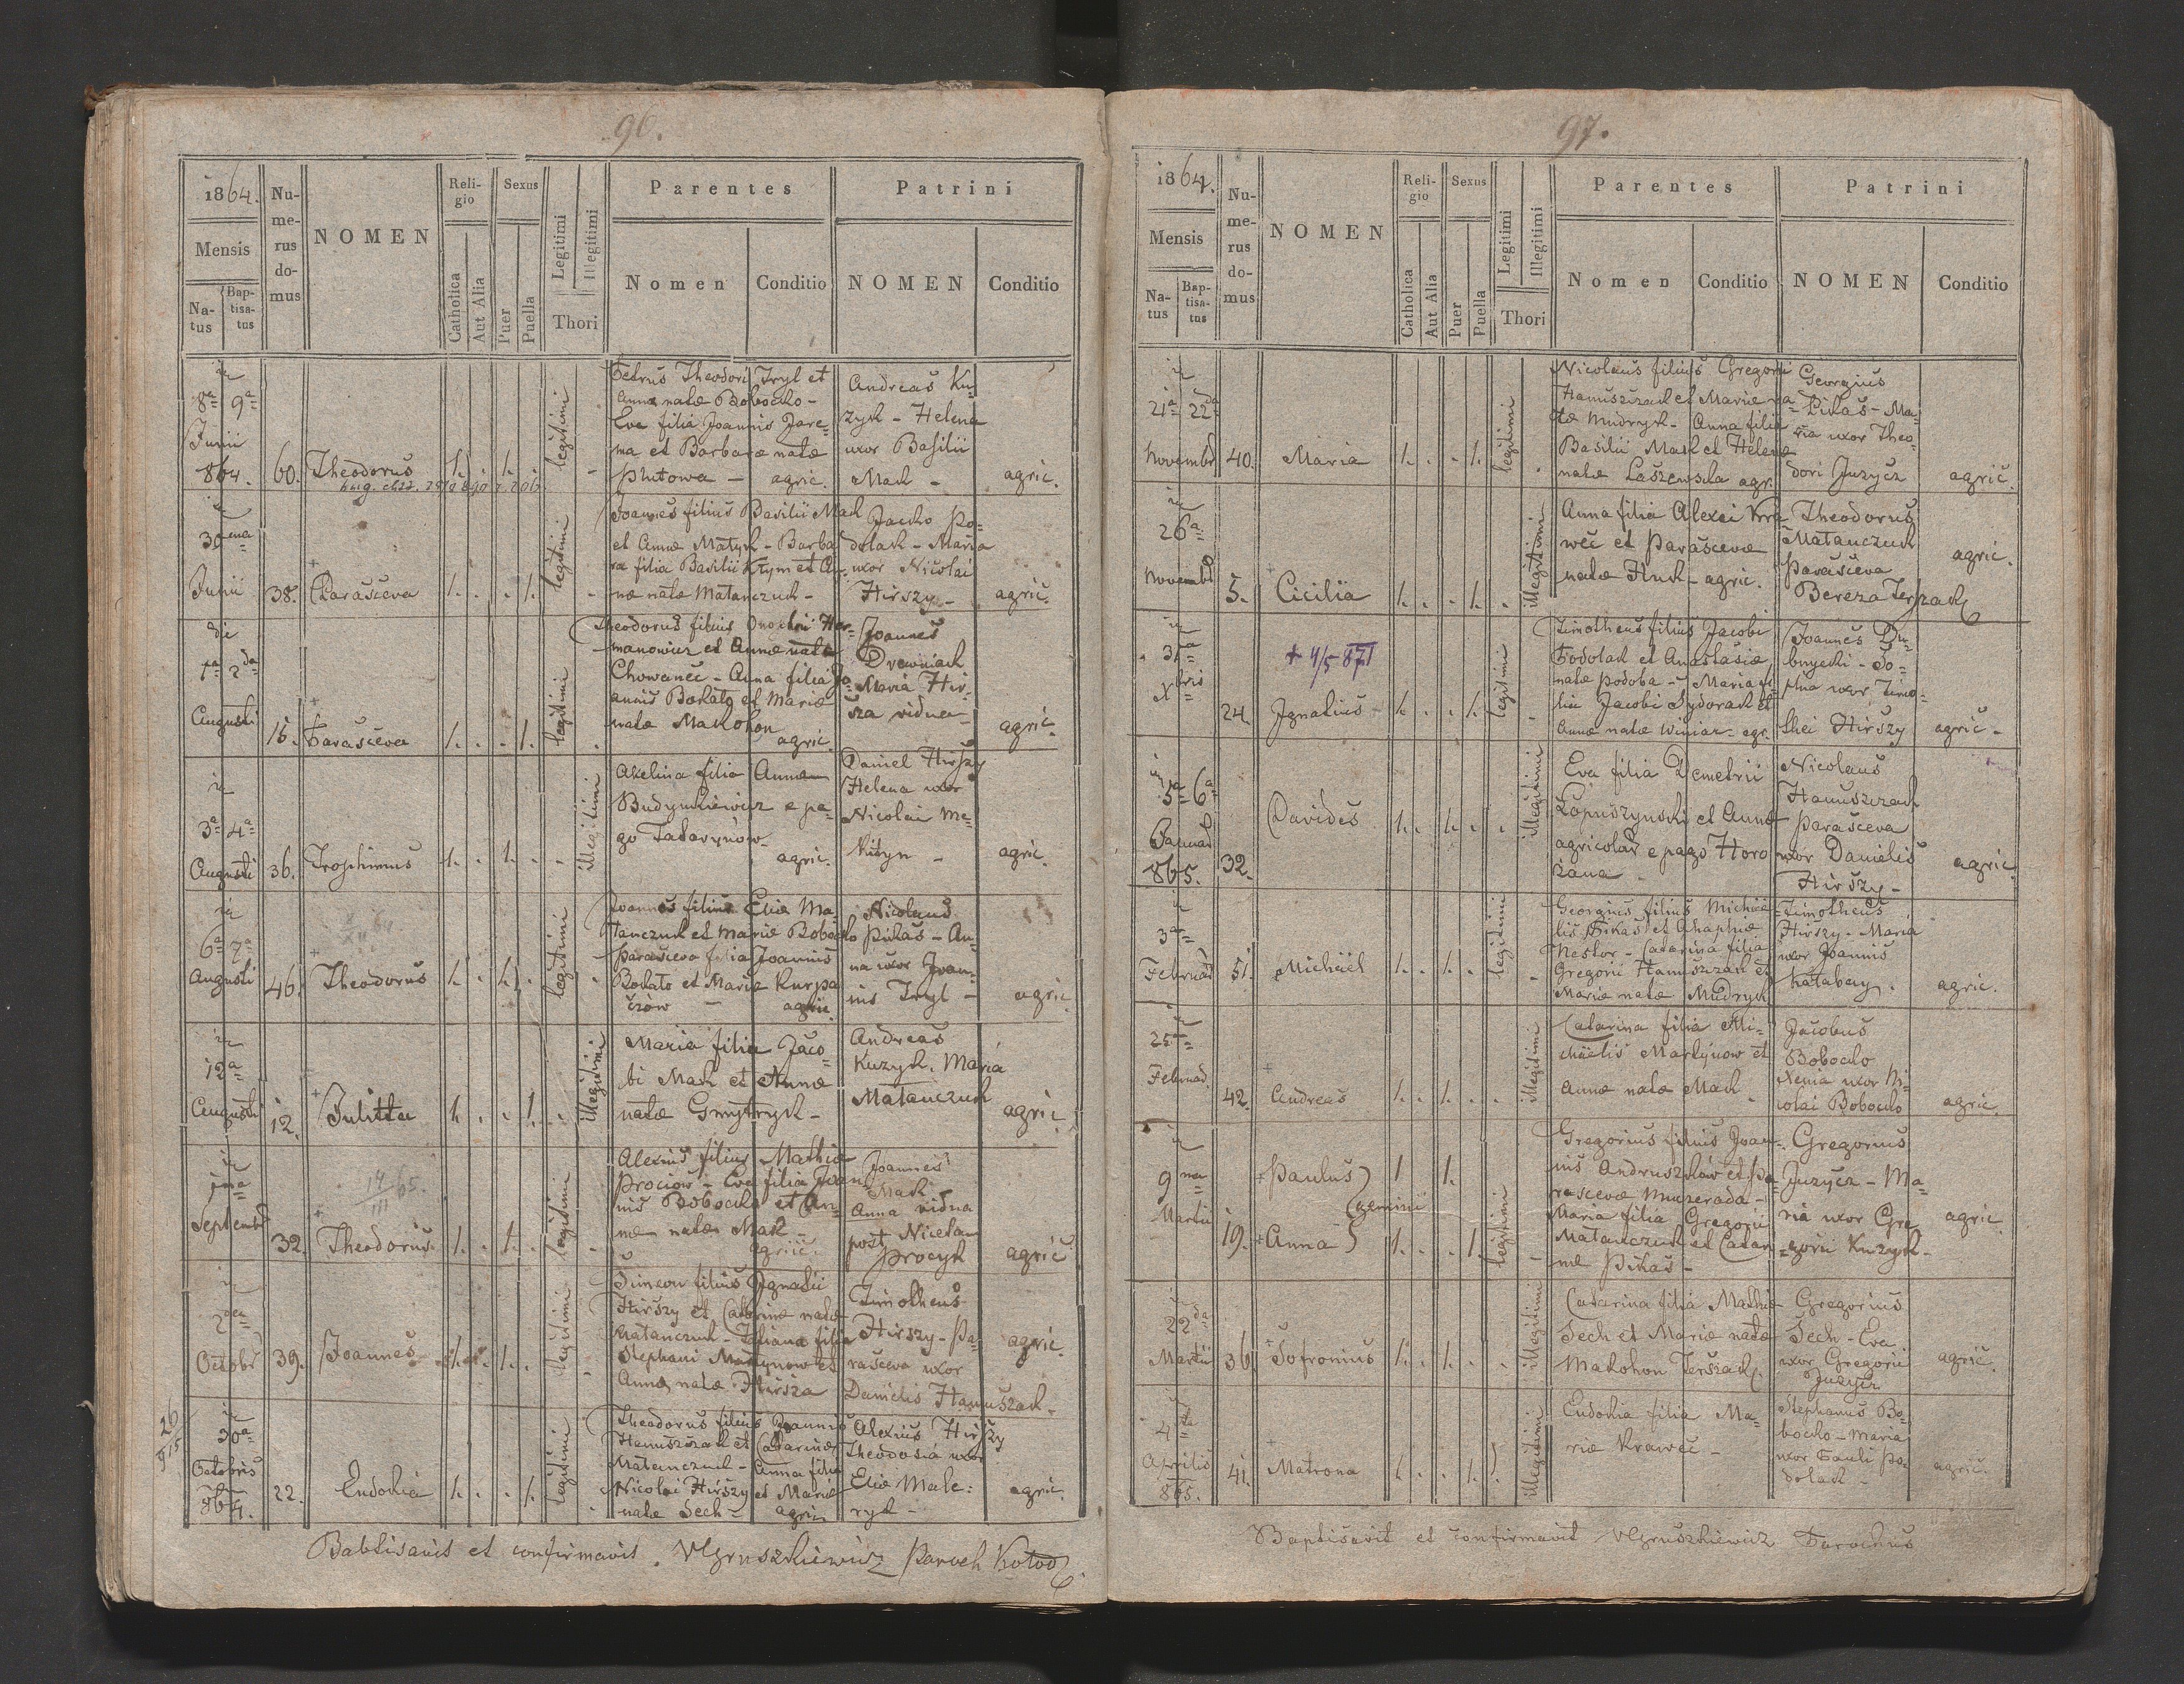 96.
1864. Nu- me- rus do- mus NOMEN Reli- gio Sexus Legitimi Illegitimi Parentes Patrini
Mensis Na- tus Bap- tisa- tus Catholica Aut Alia Puer Puella Thori Nomen Conditio NOMEN Conditio
in
8ª 9ª
Junii
864. 60. Theodorus 1. . 1. . legitimi
Petrus Theodori Tryl et
Annæ natæ Bobocko -
Eva filia Joannis Jare=
ma et Barbaræ natæ
Plutowa - agric.
Andreas Ku=
zyk - Helena
uxor Basilii
Mack -
agric.
in
30
Junii 38. Parasceva 1. . . 1. legitimi
Joannes filius Basilii Mack
et Annæ Matyk - Barba
ra filia Basilii Krym et An-
næ natæ Matanczuk -
Jacko Po=
dolak - Maria
uxor Nicolai
Hirszy -
agric.
die
1ª 2da
Augusti 16. Parasceva 1. . . 1. legitimi
Theodorus filius Onophrii Her-
manowicz et Annæ natæ
Chowanec - Anna filia Jo-
annis Bokato et Mariæ
natæ Makohon
agric.
Joannes
Drewniack
Maria Hir-
sza vidua -
agric.
in
3ª 4ª
Augusti 36. Trophimus 1. . 1. . . illegitimi
Akelina filia Annæ
Budynkiewicz e pa=
go Tatarynow -
agric.
Daniel Hirszy
Helena uxor
Nicolai Me=
kityn -
agric.
in
6ª 7ª
Augusti 46. Theodorus 1. . 1. . legitimi
Joannes filius Eliæ Ma-
tanczuk et Mariæ Bobocko
Parasceva filia Joannis
Bokato et Mariæ Kurpa
czów - agric.
Nicolaus
Pikas - An=
na uxor Joan=
nis Tryl -
agric
in
12ª
Augusti 12. Julitta 1. . . 1. . illegitimi
Maria filia Jaco=
bi Mack et Annæ
natæ Gmytryk -
Andreas
Kuzyk. Maria
Matanczuck
agric.
in
Septemb 32. Theodorus. 1. . 1. . legitimi
14/III 65.
Alexius filius Mathiæ
Prociow - Eva filia Joan=
nis Bobocko et An=
næ natæ Mack -
agric.
Joannes
Mack
Anna vidua
post Nicetam
Procyk
agric
in
2da
Octobr 39. Joannes 1. . 1. . legitimi
Simeon filius Ignatii
Hirszy et Catarinæ natæ
Matanczuck - Tatiana filia
Stephani Martynow et
Annæ natæ Hirsza
Timotheus
Hirszy - Pa=
rasceva uxor
Danielis Hanuszack -
agric.
in
30ª
Octobris
864. 22. Eudokia 1. . . 1. legitimi
Theodorus filius Joannis
Hanuszczack et Catarinæ
Matanczuck - Anna filia
Nicolai Hirszy et Mariæ
natæ Sech - agric
Alexius Hirszy
Theodosia uxor
Eliæ Male=
ryk -
agric.
Babtisavis et confirmavis . Gruszkiewicz Paroch Kołod
97.
1864. Nu- me- rus do- mus NOMEN Reli- gio Sexus Legitimi Illegitimi Parentes Patrini
Mensis Na- tus Bap- tisa- tus Catholica Aut Alia Puer Puella Thori Nomen Conditio NOMEN Conditio
in
21ª 22da
Novembr 40. Maria 1. . . 1. legitimi
Nicolaus filius Gregorii
Hanuszczack et Mariæ na-
tæ Mudryk - Anna filia
Basilii Mack et Helenæ
natæ Laszewska agr.
Georgius
Pikas - Ma-
ria uxor Theo-
dori Juzycz
agric.
in
26ª
Novembr 5. Cicilia 1. . . 1. . illegitimi
Anna filia Alexei Kra-
wec et Parascevæ
natæ Hluck - agric.
Theodorus
Matanczuck
Parasceva
Bereza Terszack
agric.
in
31ª
Xbris
24. Ignatius - 1. . . 1. legitimi
+ 4/5 871
Timotheus filius Jacobi
Podolak et Anastasiæ
natæ Podoba - Maria fi-
lia Jacobi Sydorak et
Annæ natæ Winiar - agr.
Joannes Du-
bnycki - So-
phia uxor Timo-
thei Hirszy
agric -
in
5ª 6ª
Januar
865. 32. Davides 1. . 1. . . illegitimi
Eva filia Demetrii
Łopuszynski et Annæ
agricolar e pago Horo
żana -
Nicolaus
Hanuszczack
Parasceva
uxor Danielis
Hirszy -
agric
in
3
Februar 51. Michael 1. . 1. . legitimi
Georgius filius Michae-
lis Pikas et Ahaphiæ
Nestor - Catarina filia
Gregorii Hanuszczak et
Mariæ natæ Mudryck
Timotheus
Hirszy - Maria
uxor Joannis
Katabay.
agric.
in
25
Februar. 42. Andreas 1. . 1. . . illegitimi
Catarina filia Mi=
chaelis Martynow et
Annæ natæ Mack
Jacobus
Bobocko
Xenia uxor Ni=
colai Bobocko
agric.
in
9
Martii 19. Paulus 1 1.
gemini
Anna 1. . . 1. legitimi
Gregorius filius Joan-
nis Andruszków et Pa-
rascevæ Muzerada -
Maria filia Gregorii
Matanczuk et Catari-
næ Pikas -
Gregorius
Juzycz - Ma=
ria uxor Gre=
gorii Kuzyk -
agric
in
22da
Martii 36. Sofronius 1. . 1. . . illegitimi
Catarina filia Mathiæ
Sech et Mariæ natæ
Makohon Terszack
Gregorius
Sech - Eva
uxor Gregorii
Juzycz
agric.
in
4ta
Aprilis
865. 41. Matrona 1. . . 1. illegitimi
Eudokia filia Ma=
riæ Krawec -
Stephanus Bo=
bocko - Maria
uxor Pauli Po=
dolack -
agric.
Baptisavit et confirmavit Gruszkiewicz Parochus